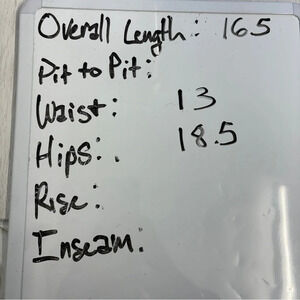 Overall Length: 165
Pit to Pit:
Waist: 13
Hips: . 18.5
Rise:
Inseam: